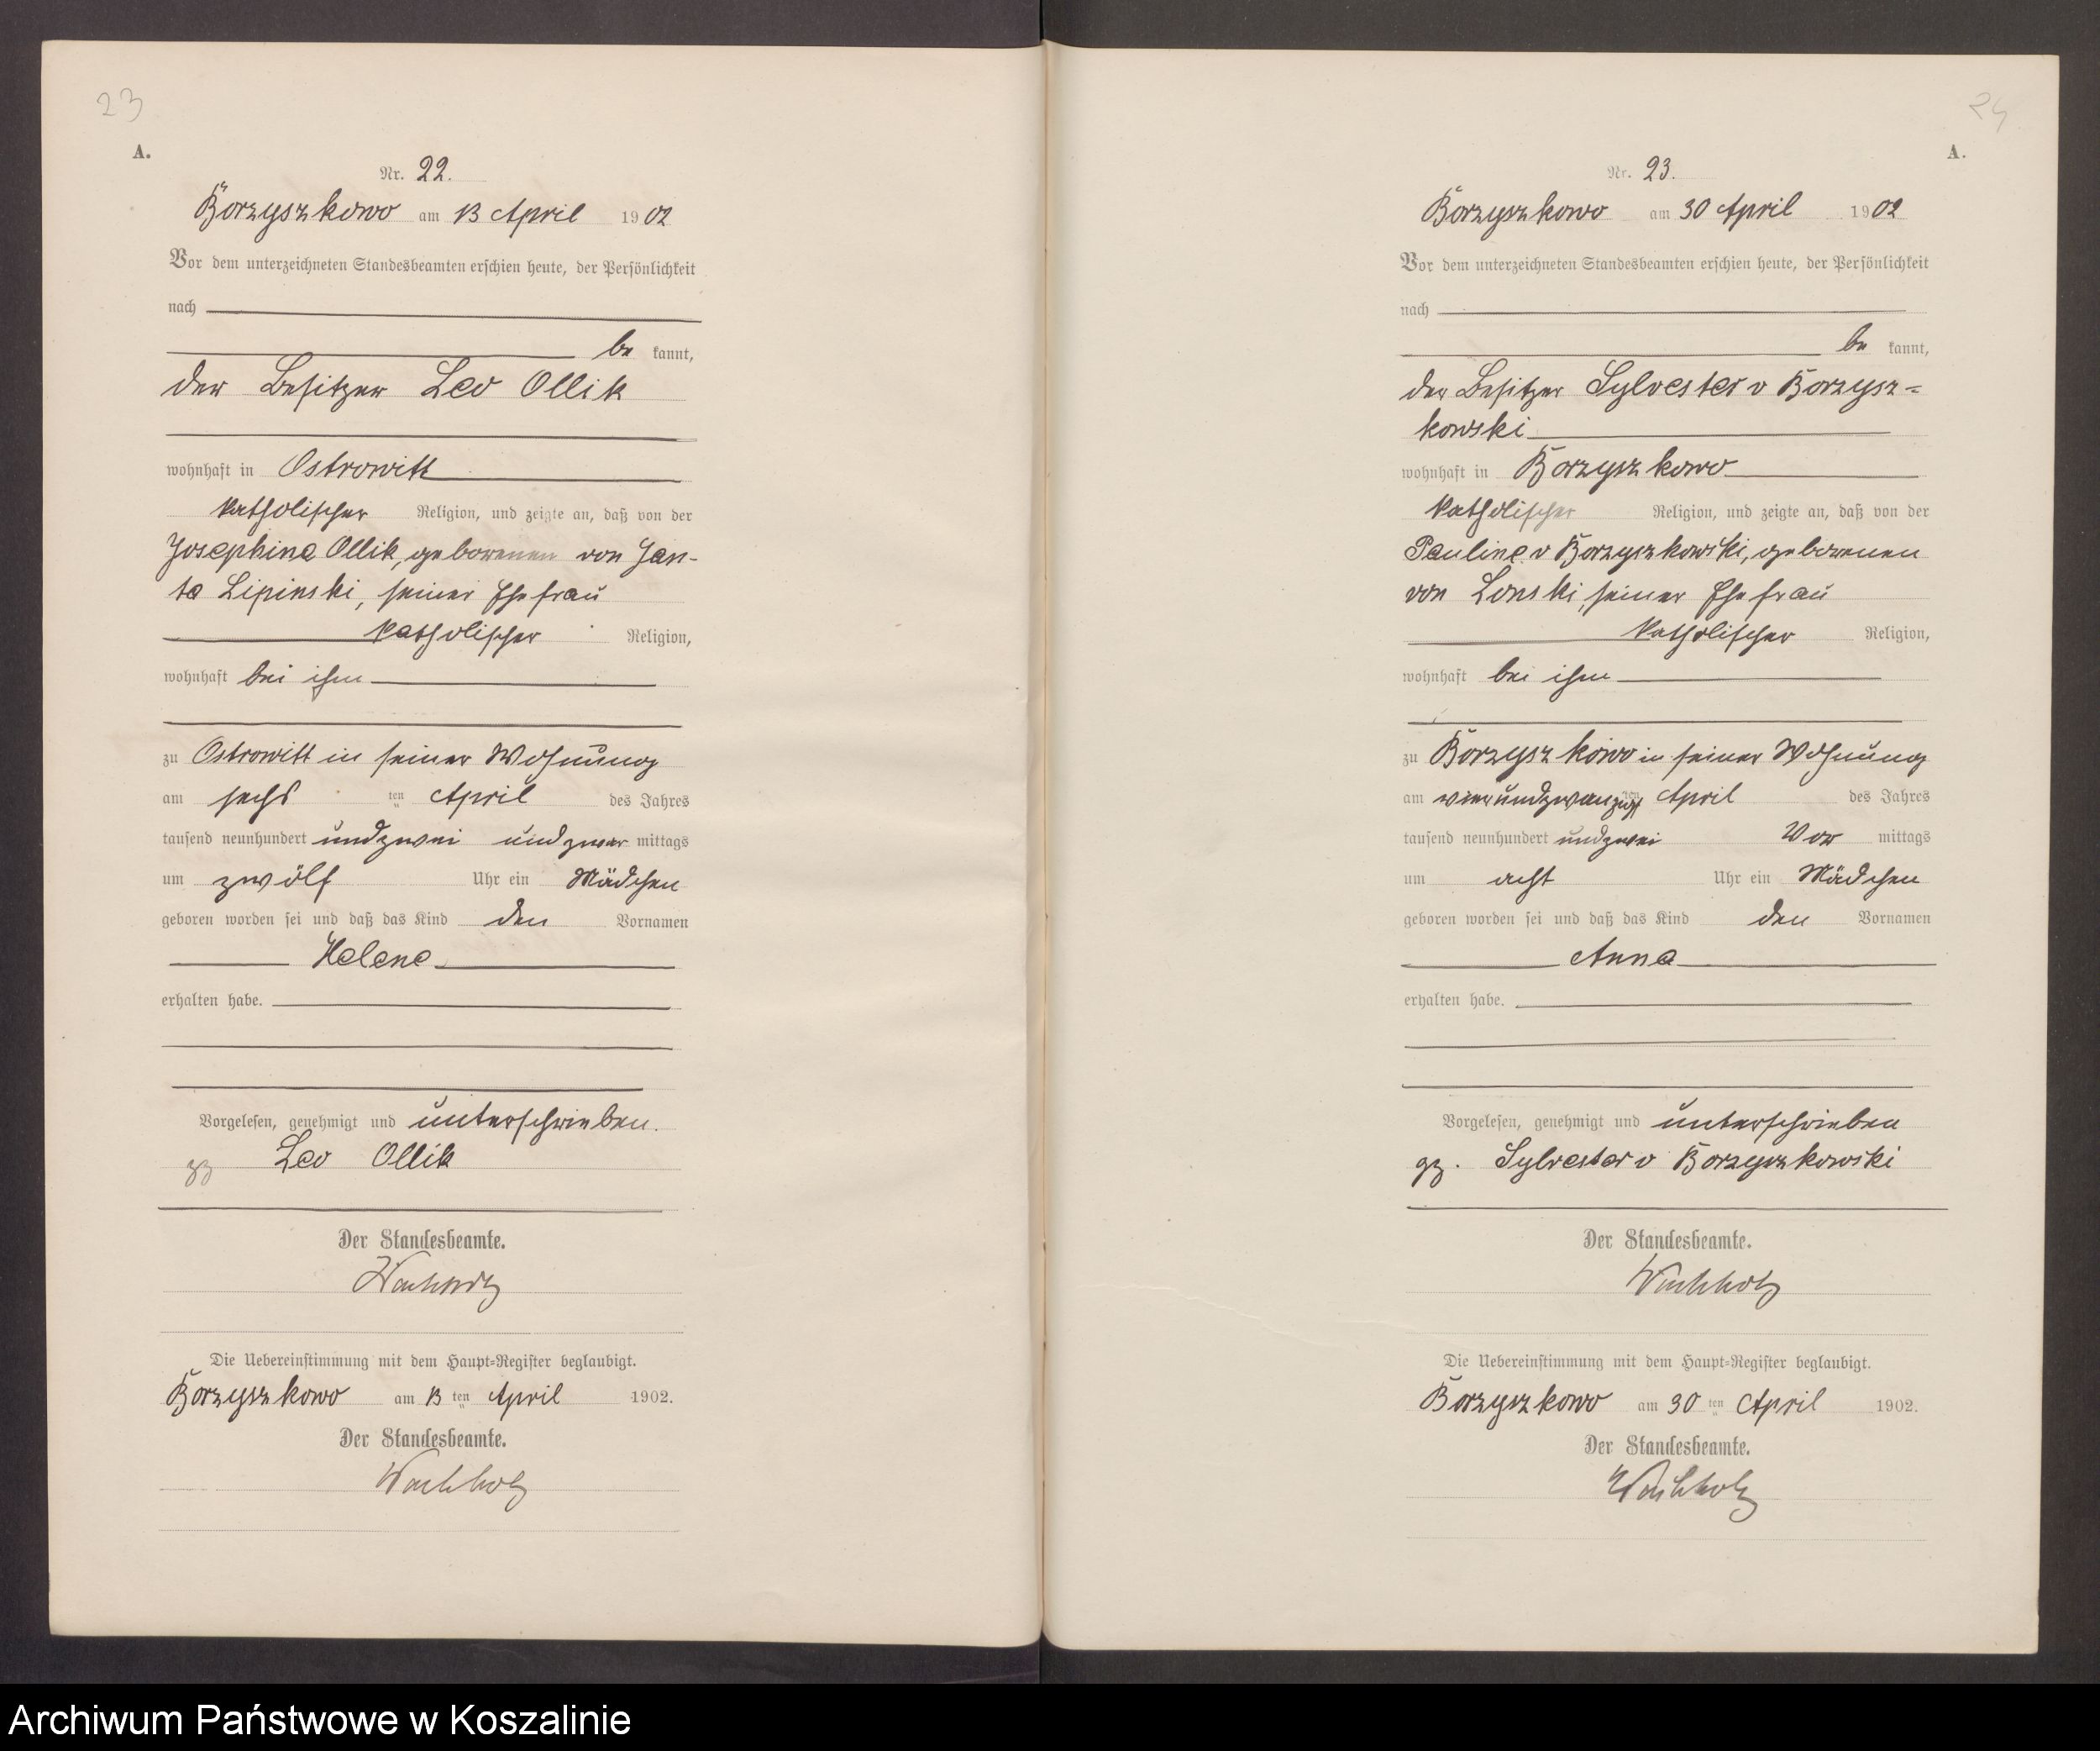 23
A.
Nr. 22.
Borzyszkowo am 13 April 1902
Vor dem unterzeichneten Standesbeamten erschien heute, der Persönlichkeit
nach
be kannt,
der Besitzer Leo Ollik
wohnhaft in Ostrowitt
katholischer Religion, und zeigte an, daß von der
Josephine Ollik, geborenen von Jan-
ta Lipinski, seiner Ehefrau
katholischer Religion,
wohnhaft bei ihm
zu Ostrowitt in seiner Wohnung
am sechs ten April des Jahres
tausend neunhundert undzwei und zwar mittags
um zwölf Uhr ein Mädchen
geboren worden sei und daß das Kind den Vornamen
Helene
erhalten habe.
Vorgelesen, genehmigt und unterschrieben.
gz Leo Ollik
Der Standesbeamte.
Wachholz
Die Uebereinstimmung mit dem Haupt-Register beglaubigt.
Borzyszkowo am 13 ten April 1902.
Der Standesbeamte.
Wachholz
24
A.
Nr. 23.
Borzyszkowo am 30 April 1902
Vor dem unterzeichneten Standesbeamten erschien heute, der Persönlichkeit
nach
be kannt,
der Besitzer Sylvester v Borzysz=
kowski
wohnhaft in Borzyszkowo
katholischer Religion, und zeigte an, daß von der
Pauline v Borzyszkowski, geborenen
von Lonski, seiner Ehefrau
katholischer Religion,
wohnhaft bei ihm
zu Borzyszkowo in seiner Wohnung
am vierundzwanzigst ten April des Jahres
tausend neunhundert undzwei Vor mittags
um acht Uhr ein Mädchen
geboren worden sei und daß das Kind den Vornamen
Anna
erhalten habe.
Vorgelesen, genehmigt und unterschrieben
gz. Sylvester v Borzyszkowski
Der Standesbeamte.
Wachholz
Die Uebereinstimmung mit dem Haupt-Register beglaubigt.
Borzyszkowo am 30 ten April 1902.
Der Standesbeamte.
Wachholz
Archiwum Państwowe w Koszalinie